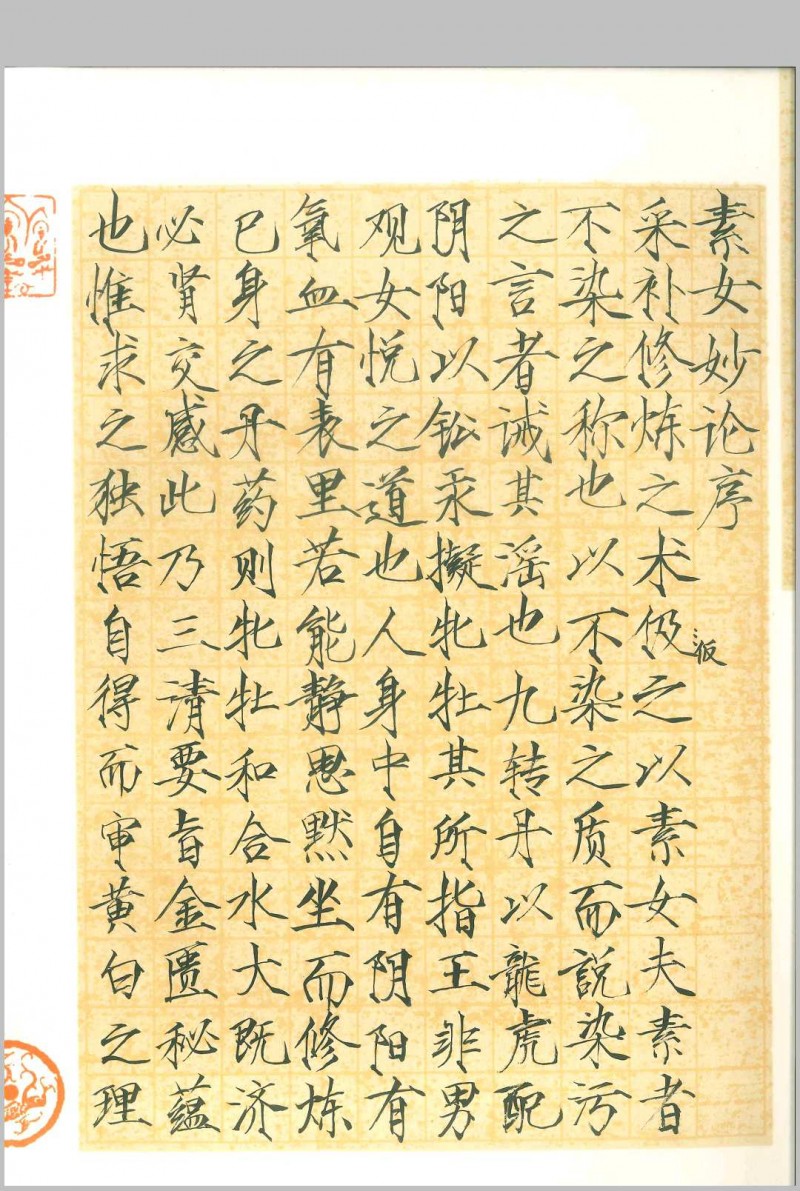 素女妙论序
采补修炼之术伋之以素女夫素者
汳
不染之称也以不染之质而説染污
之言者诫其滛也九转丹以龍虎配
阴阳以鈆汞擬牝牡其所指王非男
观女悦之道也人身中自有阴阳有
氣血有表里若能静思默坐而修炼
巳身之丹药则牝牡和合水大既济
必肾交感此乃三请要旨金匮秘蕴
也惟求之独悟自得而审黄白之理